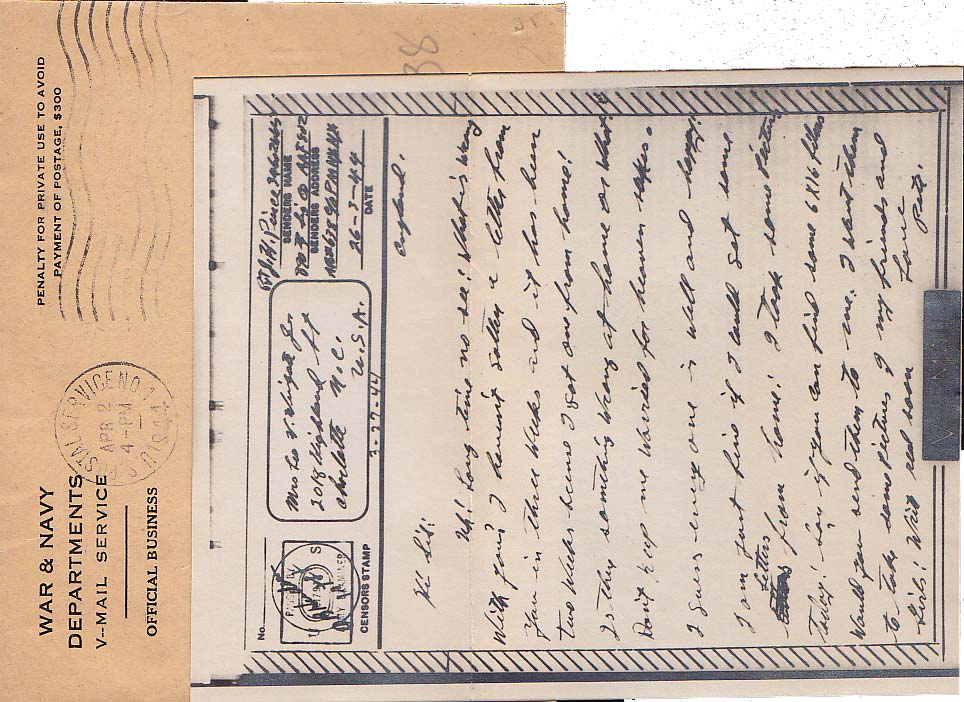 WAR & NAVY
DEPARTMENTS
V--MAIL SERVICE
OFFICIAL BUSINESS
U.S. POSTAL SERVICE NO. 1
APR 2
4-PM
1944
PENALTY FOR PRIVATE USE TO AVOID
PAYMENT OF POSTAGE, $300
38
No.
CENSORS STAMP
Mrs
2018 Highland St
Charlotte N.C.
U.S.A.
3-27-44
SENDERS NAME
SENDERS ADDRESS
26-3-44
DATE
England.
Hi Sis:
long time no see! What's wrong
With you? I haven't gotten a letter from
You in three weeks and it has been
two weeks since I got one from home!
Is they something wrong at home or what?
Don't keep me worried for heaven sakes.
I guess every one is well and happy!
I am just fine if I could get some
letters from home! I took some pictures
today! Say if you can find some 6X16 films
Would you send them to me. I want them
to take some pictures of my friends and
girls! Write real soon
Love
Pete.
V-MAIL